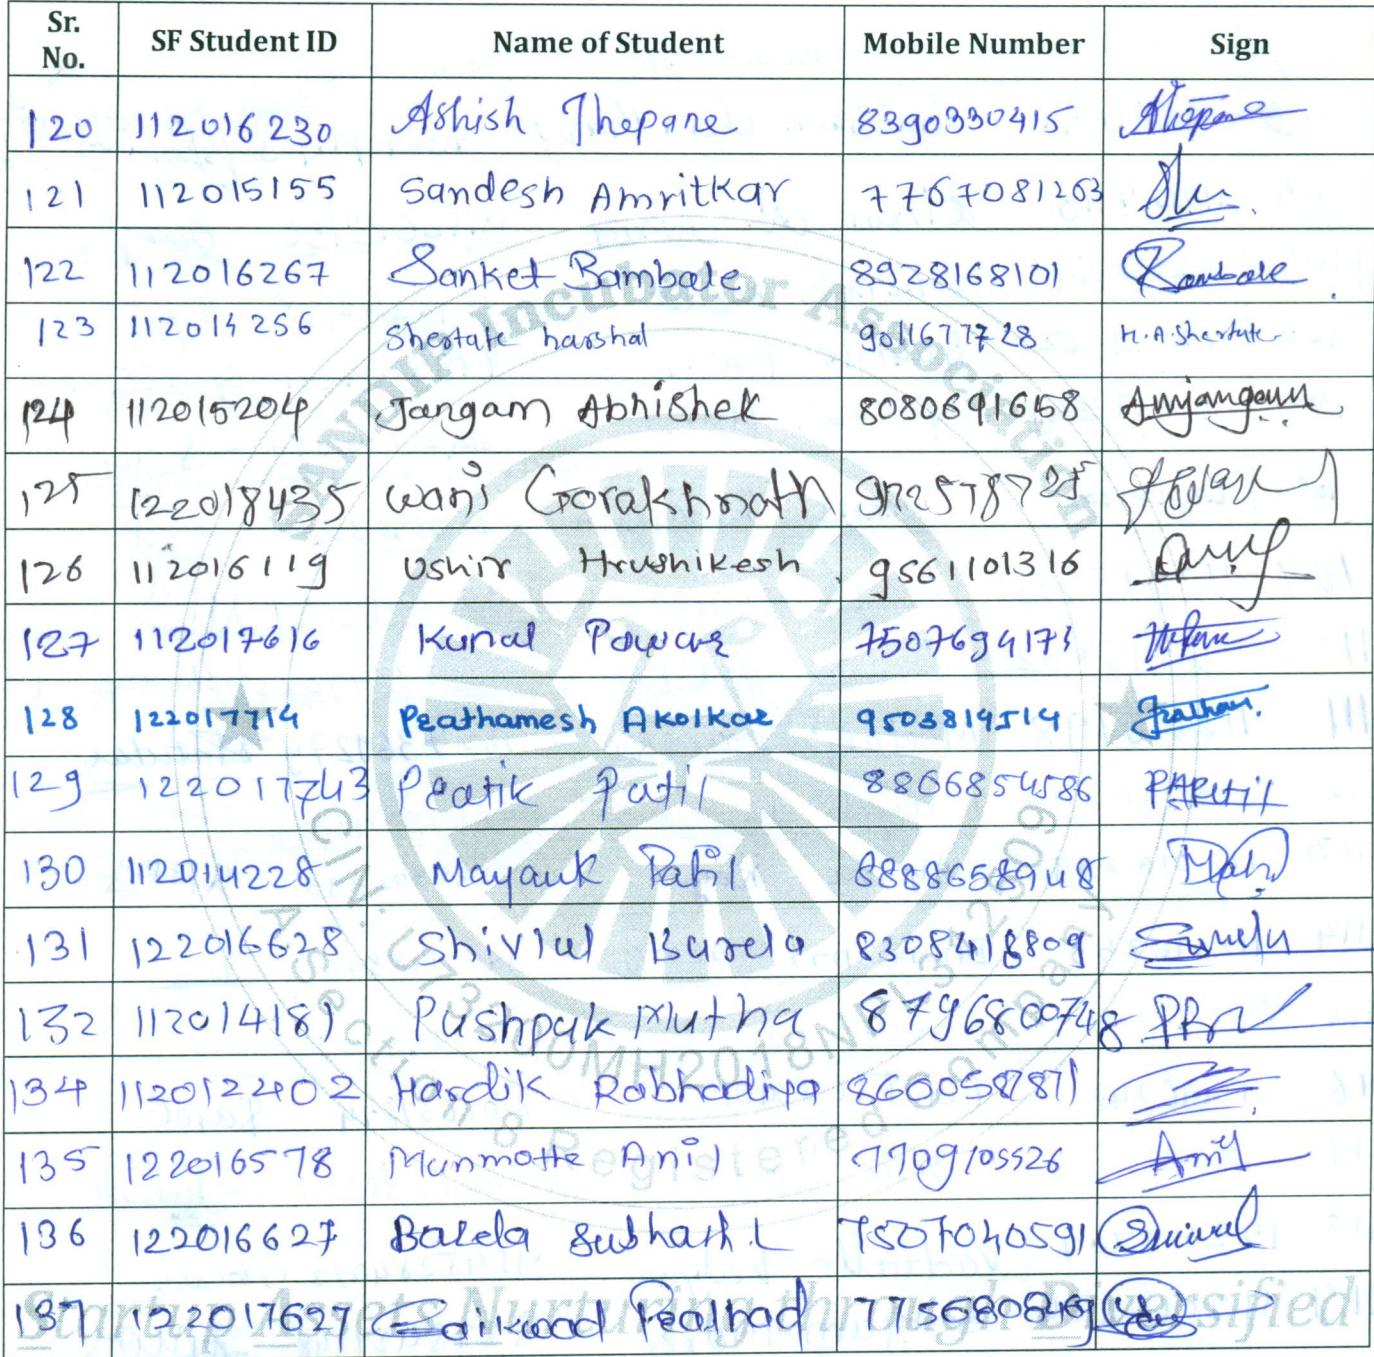 Sr. No. SF Student ID Name of Student Mobile Number Sign
120 112016230 Ashish Thepane 8390330415 Athepane
121 112015155 Sandesh Amritkar 7767081263
122 112016267 Sanket Bambale 8928168101 Bambale
123 112014256 Shertate harshal 9011677728 H.A.Shertate
124 112015204 Jangam Abhishek 8080691658 Amjangam
125 122018435 wani Gorakhnath
126 112016119 Ushir Hrushikesh 9561101316
127 112017616 Kunal Pawar 7507694173
128 122017714 Prathamesh Akolkar 9503814514 Pratham.
129 122017743 Pratik Patil 8806854586 PARatil
130 112014228 Mayank Patil 8888658948
131 122016628 Shivlal Barela 8308418809
132 112014181 Pushpak Mutha 8796800748
134 112012402 Hardik Rabhadiya 8600587871
135 122016578 Munmatte Anil 7709105526 Anil
136 122016627 Barela Subhash.L 7507040591
137 122017627 Gaikwad Pralhad 7756808469
SANDIP Incubator Association
A Section 8 Registered Company
Startup Assets Nurturing through Diversified